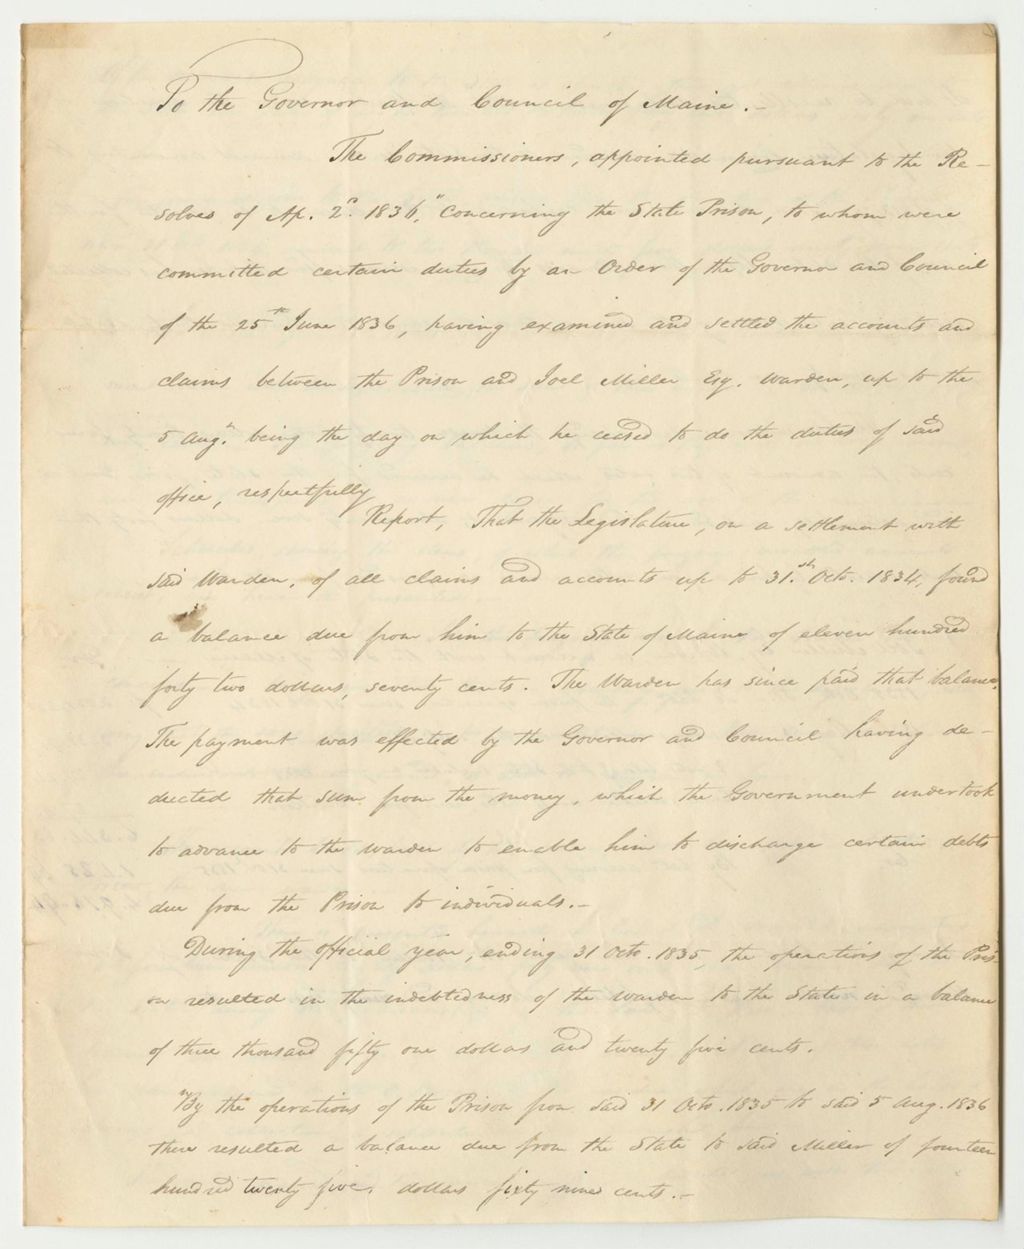 To the Governor and Council of Maine.—
The Commissioners, appointed pursuant to the Re-
solves of Ap. 2d. 1836, "concerning the State Prison, to whom were
committed certain duties by an Order of the Governor and Council
of the 25th June 1836, having examined and settled the accounts and
claims between the Prison and Joel Miller Esq. Warden, up to the
5 Aug. being the day on which he ceased to do the duties of said
office, respectfully
Report, That the Legislature, on a settlement with
said Warden, of all claims and accounts up to 31.st Octo. 1834, found
a balance due from him to the State of Maine of eleven hundred
forty two dollars, seventy cents. The Warden has since paid that balance.
The payment was effected by the Governor and Council having de-
ducted that sum from the money, which the Government undertook
to advance to the warden to enable him to discharge certain debts
due from the Prison to individuals.—
During the official year, ending 31 Octo. 1835, the operations of the Pris-
on resulted in the indebtedness of the warden to the State in a balance
of three thousand fifty one dollars and twenty five cents.
By the operations of the Prison from said 31 Octo. 1835 to said 5 Aug. 1836
there resulted a balance due from the State to said Miller of fourteen
hundred twenty five, dollars sixty nine cents.—